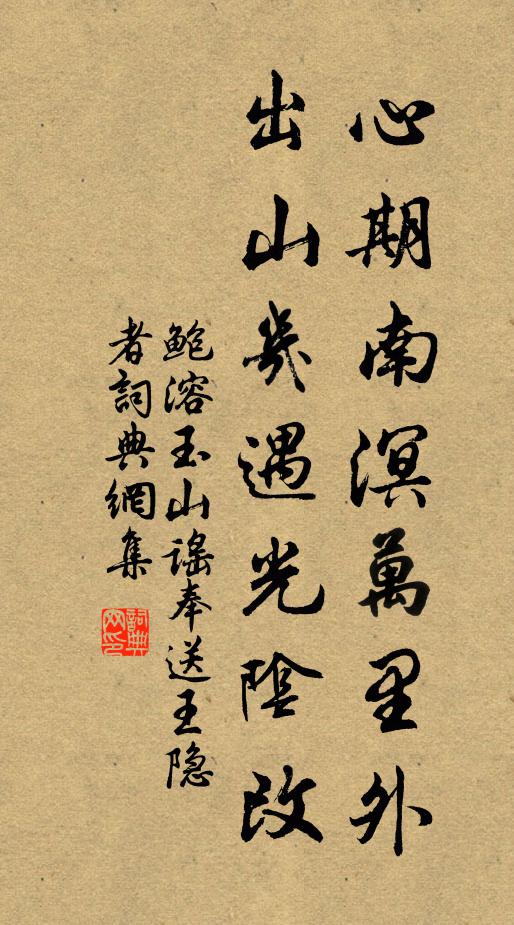 心期南溟萬里外
出山幾遇光陰改
鲍溶玉山謠奉送王隐
者詞典網集
詞典网印